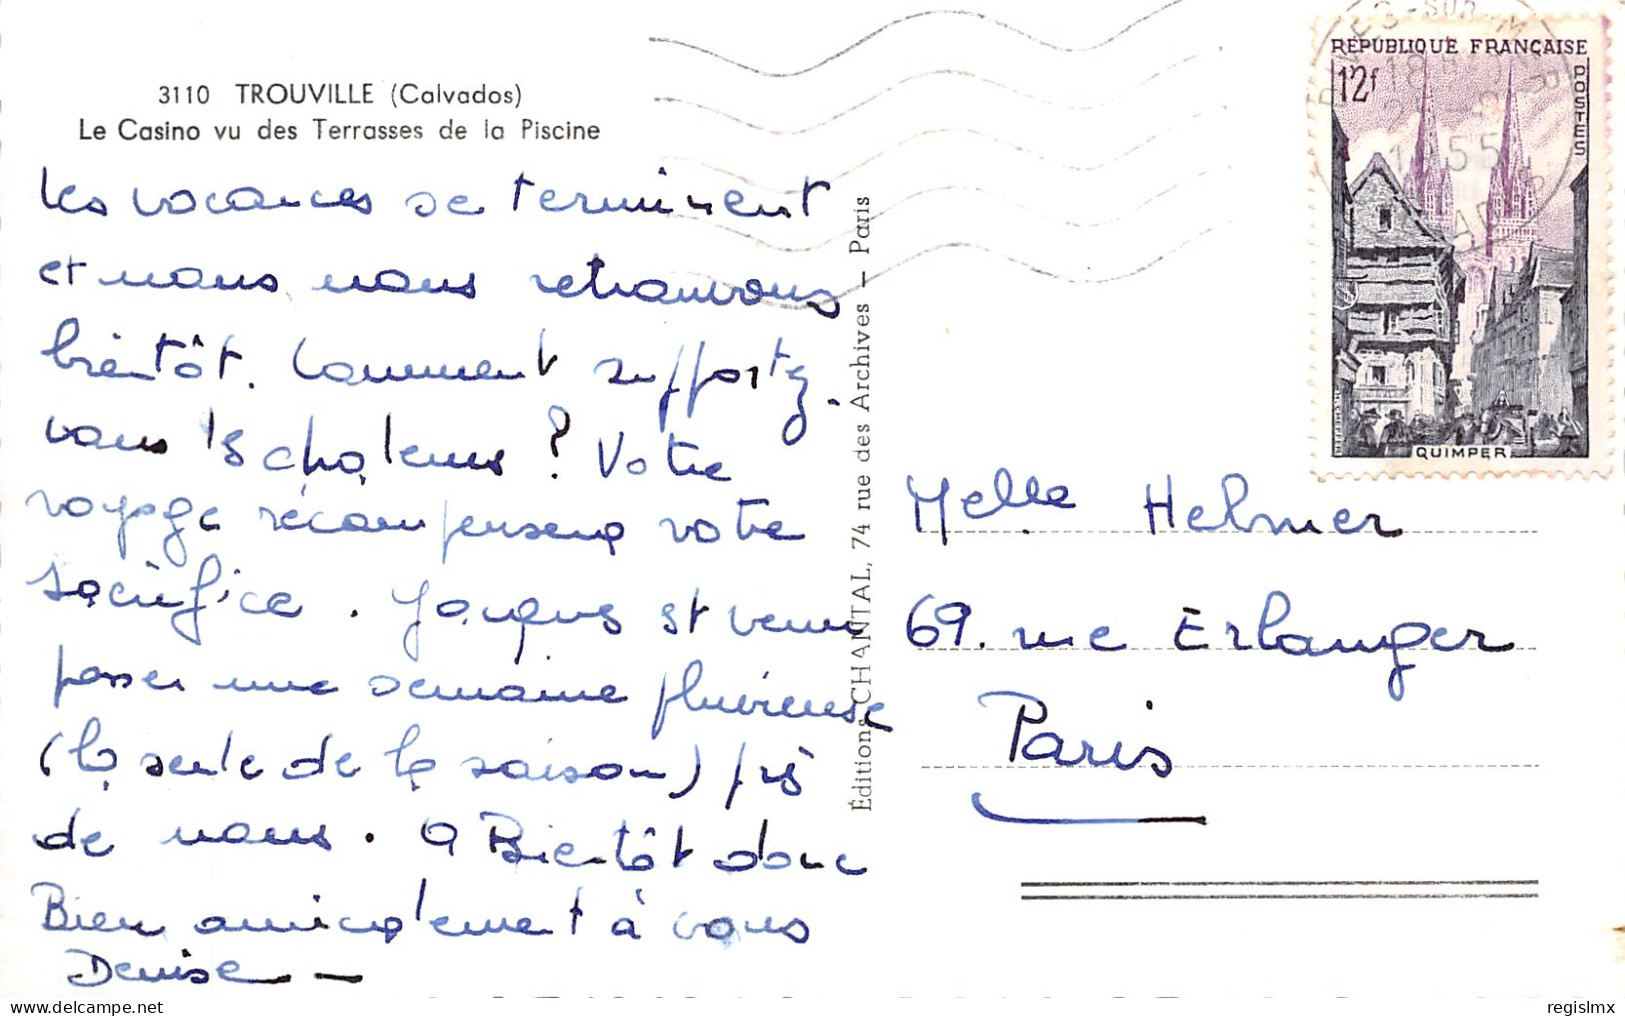 3110 TROUVILLE (Calvados)
Le Casino vu des Terrasses de la Piscine
Les vacances se terminent
et nous nous retrouvons
bientôt. Comment supportez.
vous les chaleurs ? Votre
voyage récompensera votre
sacrifice. Jacques est venu
passer une semaine pluvieuse
(la seule de la saison) près
de nous. A Bientôt donc
Bien amicalement à vous
Denise —
Éditions CHANTAL, 74 rue des Archives — Paris
RÉPUBLIQUE FRANÇAISE
12f
POSTES
QUIMPER
SUR
18H
1955
Melle Helmer
69. rue Erlanger
Paris
regislmx